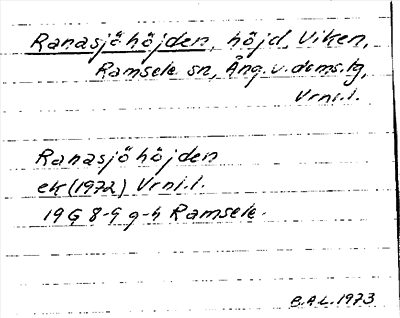 Ranasjöhöjden, höjd, Viken,
Ramsele sn, Ång. v. doms.lg,
Vrnl.l.
Ranasjöhöjden
ek (1972) Vrnl.l.
19G 8-9 g-h Ramsele.
B.A.L. 1973